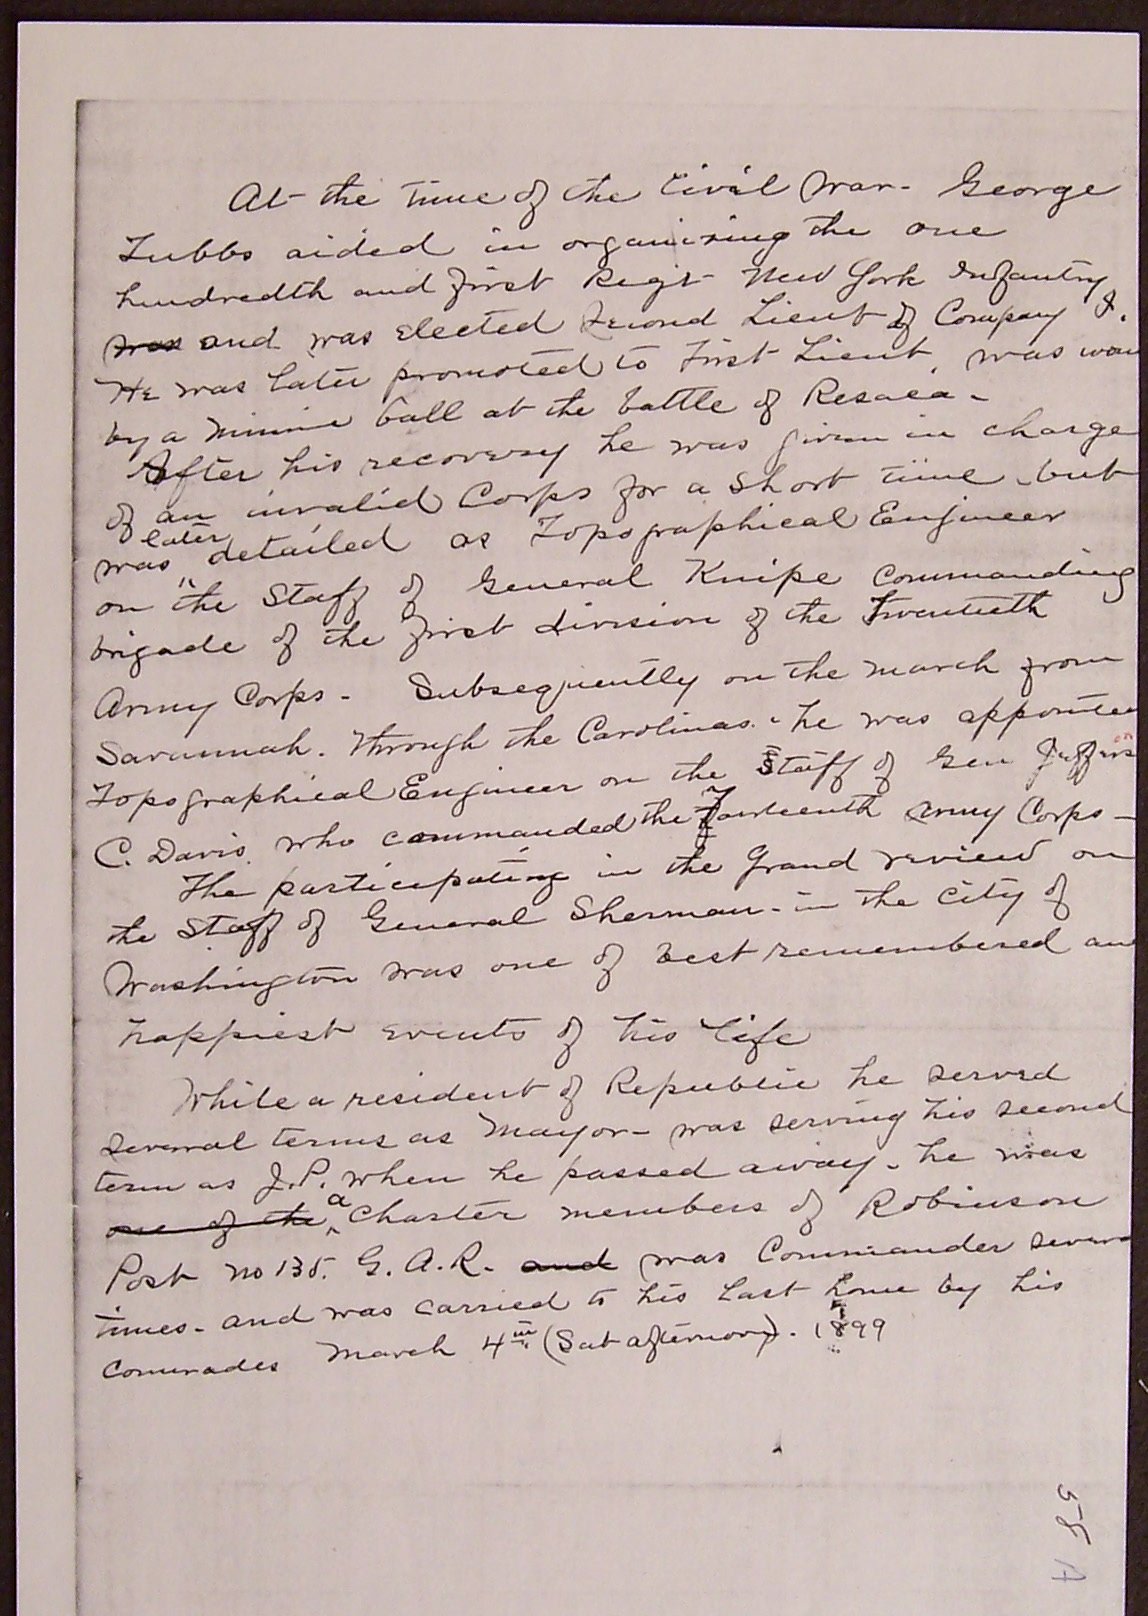 At the time of the Civil War - George
Tubbs aided in organizing the one
hundredth and first Regt New York Infantry
was and was elected Second Lieut of Company I.
He was later promoted to First Lieut, was woun
by a minnie ball at the battle of Resaca -
After his recovery he was given in charge
of an invalid Corps for a short time but
later
was detailed as Topographical Engineer
on the Staff of General Knipe commanding
brigade of the first division of the Twentieth
Army Corps - Subsequently on the march from
Savannah. through the Carolinas. he was appointed
Topographical Engineer on the Staff of Gen Jefferson
C. Davis. who commanded the Fourteenth Army Corps -
The participating in the Grand review on
the Staff of General Sherman - in the City of
Washington was one of best remembered an
happiest events of his life
While a resident of Republic he served
several terms as Mayor - was serving his second
term as J.P. when he passed away - he was
one of the a Charter members of Robinson
Post no 135. G. A. R. - and was Commander several
times - and was carried to his last home by his
comrades March 4th (Sat afternoon) - 1899
58 A